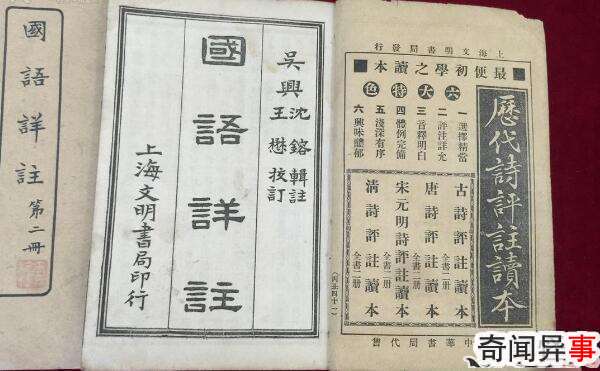 國語詳註 第二冊
吳興沈鎔輯註
王懋校訂
國語詳註
上海文明書局印行
上海文明書局發行
最便初學之讀本
六大特色
一 選擇精當
二 評注詳允
三 音釋明白
四 體例完備
五 淺深有序
六 興味醲郁
歷代詩評註讀本
古詩評註讀本 全書二册
唐詩評註讀本 全書二册
宋元明詩評註讀本 全書二册
清詩評註讀本 全書二册
中華書局代售
奇闻异事